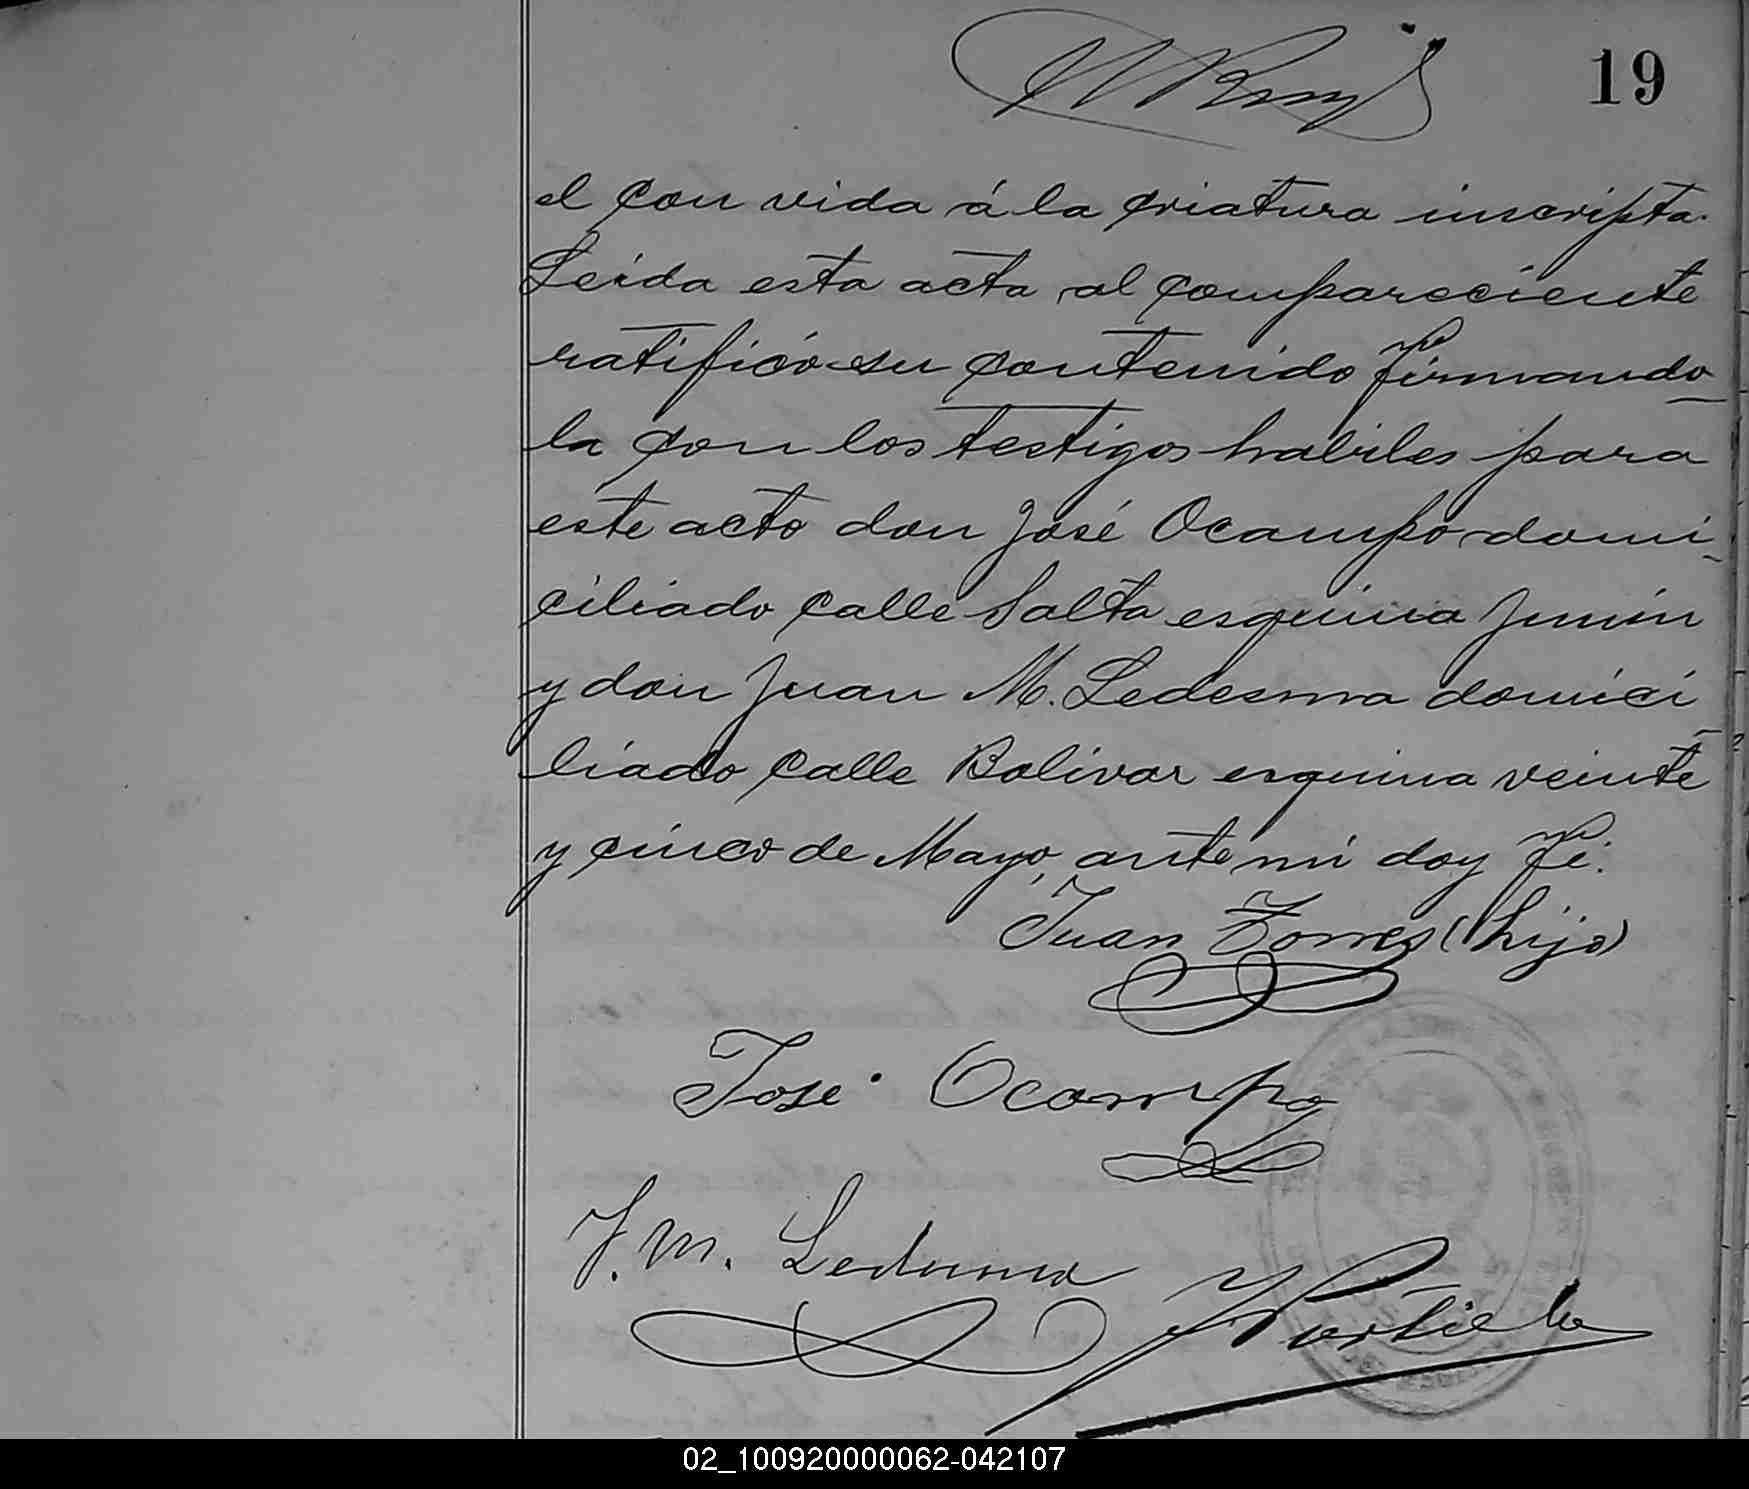 19
el con vida á la criatura inscripta.
Leida esta acta al compareciente
ratificó su contenido firmando
la con los testigos habiles para
este acto don José Ocampo domi-
ciliado calle Salta esquina Junin
y don Juan M. Ledesma domici-
liado calle Bolivar esquina veinte
y cinco de Mayo, ante mi doy fé.
Juan Torres (hijo)
José Ocampo
J. M. Ledesma
02_100920000062-042107